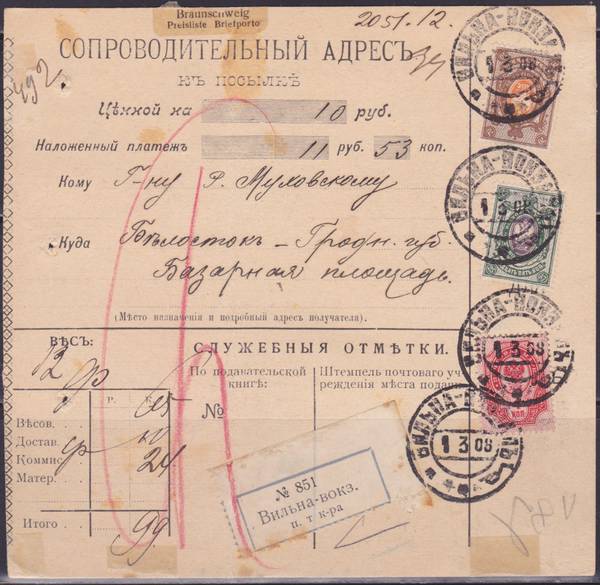 Braunschweig
Preisliste Briefporto
2051.12.
492
СОПРОВОДИТЕЛЬНЫЙ АДРЕСЪ
КЪ ПОСЫЛКѢ
Цѣнной на 10 руб.
Наложенный платежъ 11 руб. 53 коп.
Кому Г-ну Р. Муховскому
Куда Бѣлостокъ – Гродн. губ.
Базарная площадь.
(Мѣсто назначенія и потребный адресъ получателя).
ВѢСЪ:
СЛУЖЕБНЫЯ ОТМѢТКИ.
12 ф
По подавательской книгѣ:
Штемпель почтоваго учрежденія мѣста подачи
Р. К.
№
Вѣсов. 65
Достав. 10
Коммис. 24
Матер.
Итого 99
№ 851
Вильна-вокз.
п. т к-ра
ВИЛЬНА-ВОКЗАЛЪ
1 3 08
ВИЛЬНА-ВОКЗАЛЪ
1 3 08
ВИЛЬНА-ВОКЗАЛЪ
1 3 08
КОП
ВИЛЬНА-ВОКЗАЛЪ
1 3 08